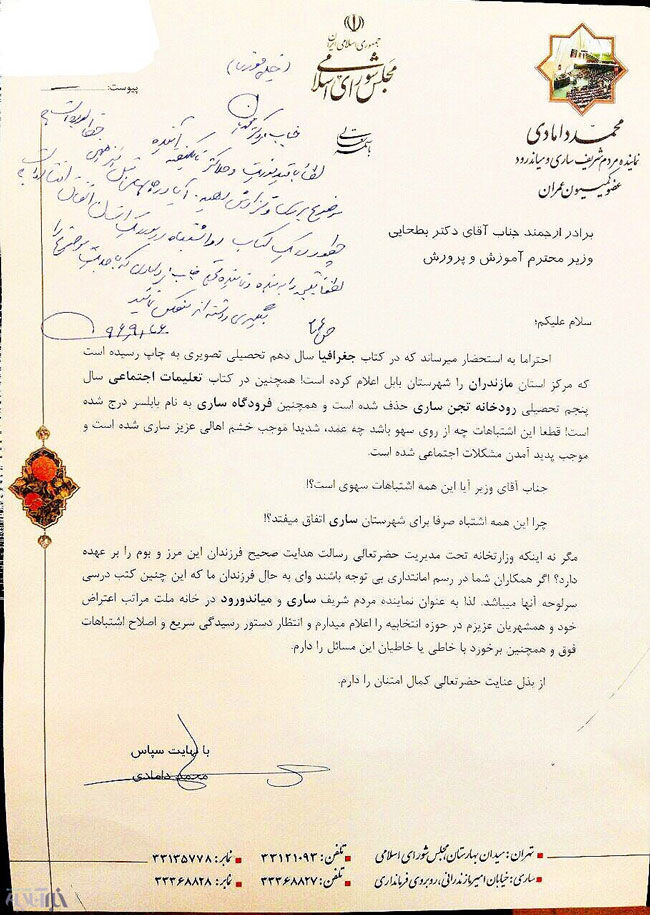 جمهوری اسلامی ایران
مجلس شورای اسلامی
باسمه تعالی
پیوست:
محمد دامادی
نماینده مردم شریف ساری و میاندرود
عضو کمیسیون عمران
(خیلی فوری)
جناب دکتر
لطفا با قید فوریت و حداکثر تا یکهفته آینده
موضوع بررسی و گزارش دهید. آیا
چطور در یک کتاب دو اشتباه در یک استان اتفاق
لطفا نتیجه را به بنده و نماینده محترم جناب دامادی که با جدیت موضوع را
پیگیری داشته‌اند منعکس نمائید
۹۶/۹/۲۶
برادر ارجمند جناب آقای دکتر بطحایی
وزیر محترم آموزش و پرورش
سلام علیکم؛
احتراما به استحضار میرساند که در کتاب جغرافیا سال دهم تحصیلی تصویری به چاپ رسیده است
که مرکز استان مازندران را شهرستان بابل اعلام کرده است! همچنین در کتاب تعلیمات اجتماعی سال
پنجم تحصیلی رودخانه تجن ساری حذف شده است و همچنین فرودگاه ساری به نام بابلسر درج شده
است! قطعا این اشتباهات چه از روی سهو باشد چه عمد، شدیدا موجب خشم اهالی عزیز ساری شده است و
موجب پدید آمدن مشکلات اجتماعی شده است.
جناب آقای وزیر آیا این همه اشتباهات سهوی است؟!
چرا این همه اشتباه صرفا برای شهرستان ساری اتفاق میفتد؟!
مگر نه اینکه وزارتخانه تحت مدیریت حضرتعالی رسالت هدایت صحیح فرزندان این مرز و بوم را بر عهده
دارد؟ اگر همکاران شما در رسم امانتداری بی توجه باشند وای به حال فرزندان ما که این چنین کتب درسی
سرلوحه آنها میباشد. لذا به عنوان نماینده مردم شریف ساری و میاندورود در خانه ملت مراتب اعتراض
خود و همشهریان عزیزم در حوزه انتخابیه را اعلام میدارم و انتظار دستور رسیدگی سریع و اصلاح اشتباهات
فوق و همچنین برخورد با خاطی یا خاطیان این مسائل را دارم.
از بذل عنایت حضرتعالی کمال امتنان را دارم.
با نهایت سپاس
محمد دامادی
تهران: میدان بهارستان، مجلس شورای اسلامی تلفن: ۳۳۱۲۱۰۹۳ نمابر: ۳۳۱۳۵۷۷۸
ساری: خیابان امیرمازندرانی، روبروی فرمانداری تلفن: ۳۳۳۶۸۸۲۷ نمابر: ۳۳۳۶۸۸۲۸
خبرآنلاین